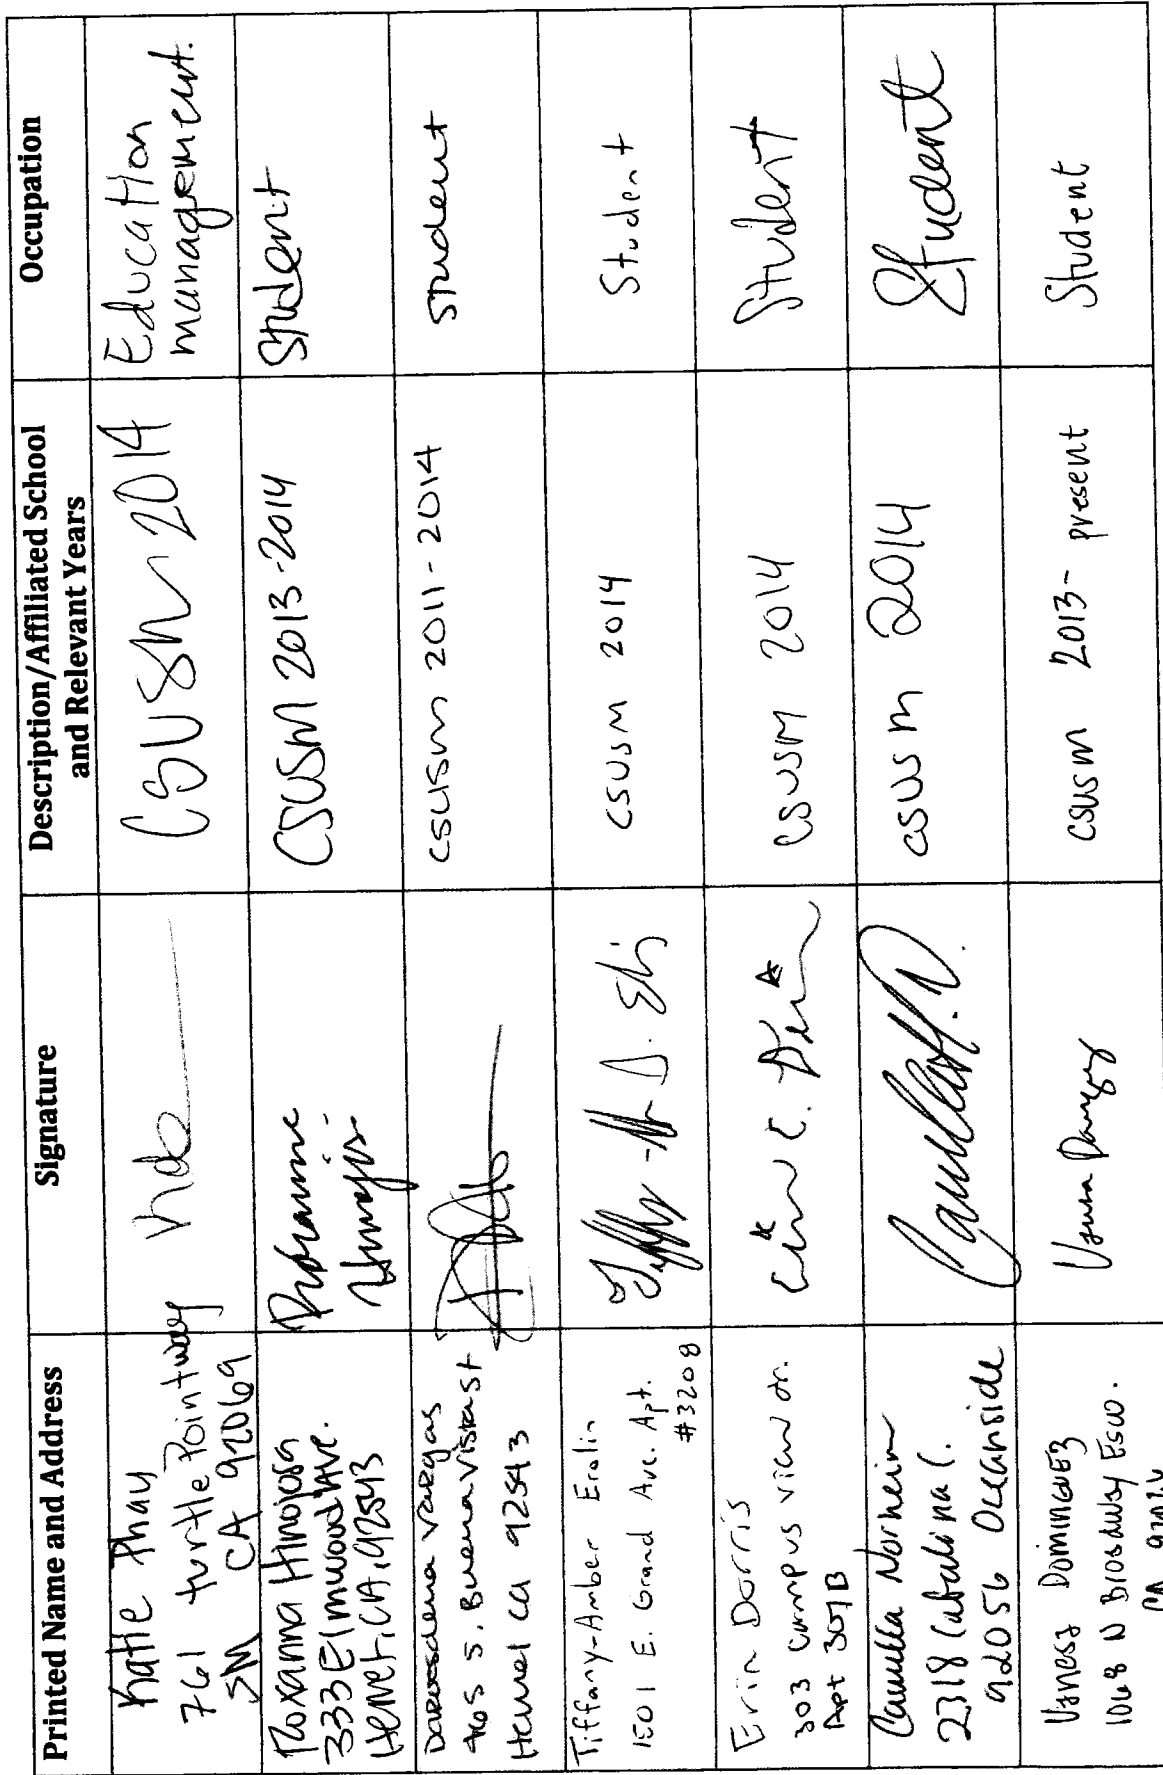 Printed Name and Address
Signature
Description/Affiliated School
and Relevant Years
Occupation
Katie Phay
761 turtle Point way
SM CA 92069
CSUSM 2014
Education
management.
Roxanna Hinojosa
333 Elmwood Ave.
Hemet, CA, 92543
CSUSM 2013-2014
Student
Vargas
S. Buena Vista St
Hemet CA 92543
CSUSM 2011-2014
Student
Tiffany-Amber Erolin
1501 E. Grand Ave. Apt.
#3208
CSUSM 2014
Student
Erin Dorris
303 Campus view dr.
Apt 307B
Erin C.
CSUSM 2014
Student
Camilla Norheim
2318 Catalina C.
92056 Oceanside
CSUSM 2014
Student
Dominguez
1068 N Broadway Esco.
CA 92026
CSUSM 2013- present
Student